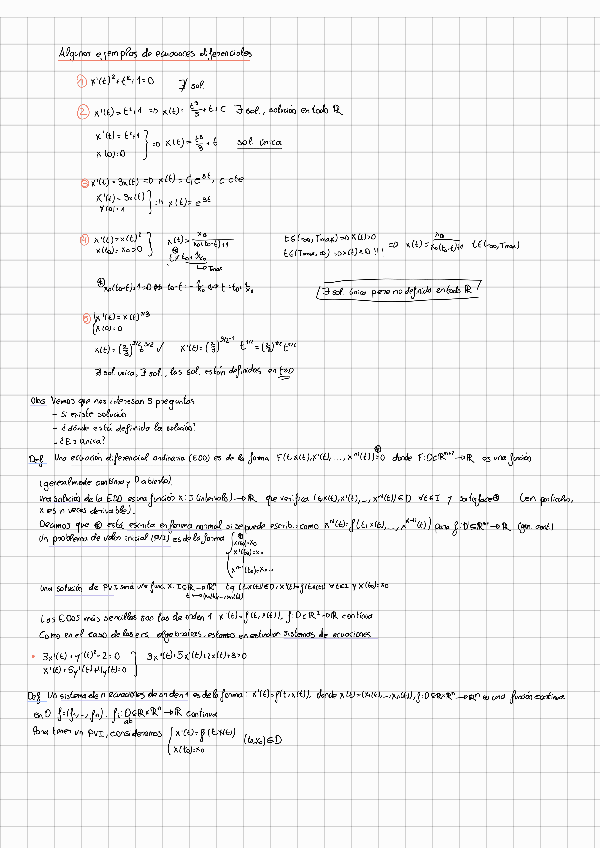 Algunos ejemplos de ecuaciones diferenciales
① x'(t)² + t² + 1 = 0 ∄ sol.
② x'(t) = t² + 1 ⇒ x(t) = t³/3 + t + C ∃ sol., solución en todo ℝ
x'(t) = t² + 1
x(0) = 0 } ⇒ x(t) = t³/3 + t sol. única
③ x'(t) = 3x(t) ⇒ x(t) = C₁e^{3t}, c cte
x'(t) = 3x(t)
x(0) = 1 } ⇒ x(t) = e^{3t}
④ x'(t) = x(t)²
x(t₀) = x₀ > 0 } x(t) = x₀/(x₀(t₀-t)+1)
t₀ + 1/x₀
Tmax
t∈(-∞, Tmax) ⇒ x(t) > 0
t∈(Tmax, ∞) ⇒ x(t) < 0 !! ⇒ x(t) = x₀/(x₀(t₀-t)+1) t∈(-∞, Tmax)
x₀(t₀-t)+1 = 0 ⇔ t₀-t = -1/x₀ ⇔ t = t₀ + 1/x₀
∃ sol. única pero no definida en todo ℝ
⑤ { x'(t) = x(t)^{1/3}
x(0) = 0
x(t) = (2/3)^{3/2} t^{3/2} ✓
∄ sol única, ∃ sol., las sol. están definidas en t≥0
Obs Vemos que nos interesan 3 preguntas
- Si existe solución
- ¿dónde está definida la solución?
- ¿Es única?
Def Una ecuación diferencial ordinaria (EDO) es de la forma F(t, x(t), x'(t), ..., xⁿ(t)) = 0 donde F: D⊂ℝⁿ⁺² → ℝ es una función
(generalmente continua y D abierto).
Una solución de la EDO es una función x: I (intervalo) → ℝ que verifica (t, x(t), x'(t), ..., xⁿ(t)) ∈ D ∀t∈I y satisface ⊛ (en particular,
x es n veces derivable).
Decimos que ⊛ está escrita en forma normal si se puede escribir como xⁿ(t) = f(t, x(t), ..., xⁿ⁻¹(t)) para f: D⊂ℝⁿ⁺¹ → ℝ (gen. cont)
Un problema de valor inicial (PVI) es de la forma
x(t₀) = x₀
x'(t₀) = x₁
Una solución de PVI será una func. x: I⊂ℝ → ℝⁿ tq (t, x(t)) ∈ D, x'(t) = f(t, x(t)) ∀t∈I y x(t₀) = x₀
Las EDOS más sencillas son las de orden 1 x'(t) = f(t, x(t)), f: D⊂ℝ² → ℝ continua
Como en el caso de las ecs. algebraicas, estamos en estudiar sistemas de ecuaciones
3x'(t) + y'(t)² - 2 = 0
x'(t) + 5y'(t) + 14y(t) = 0
Def Un sistema de n ecuaciones de orden 1 es de la forma: x'(t) = f(t, x(t)), donde x(t) = (x₁(t), ..., xₙ(t)), f: D⊂ℝ×ℝⁿ → ℝⁿ es una función continua
en D f = (f₁, ..., fₙ). fᵢ: D⊂ℝ×ℝⁿ → ℝ continua
ab
Para tener un PVI, consideramos { x'(t) = f(t, x(t))
x(t₀) = x₀ (t₀, x₀) ∈ D